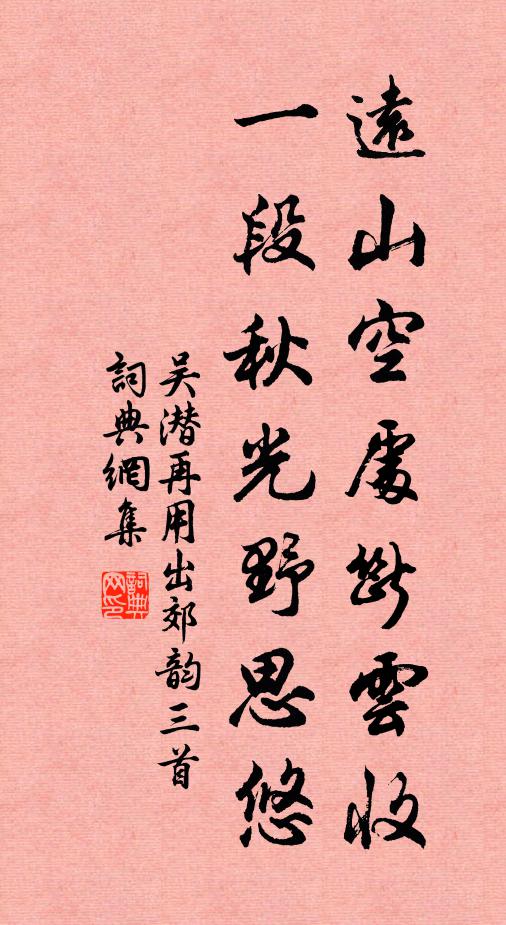 遠山空處斷雲收
一段秋光野思悠
吴潜再用出郊韵三首
詞典網集
詞典網印